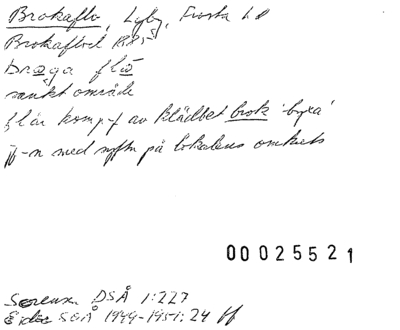 Brokaflo, Lyby, Frosta hd
Brokaflod RR,5
braga flo
sankt område
f l är komp-f av klädbet brok 'byxa'
jf-n med syftn på lokalens omkrets
00025521
Sørensen DSÅ 1:227
SOÅ 1949-1951:24 ff